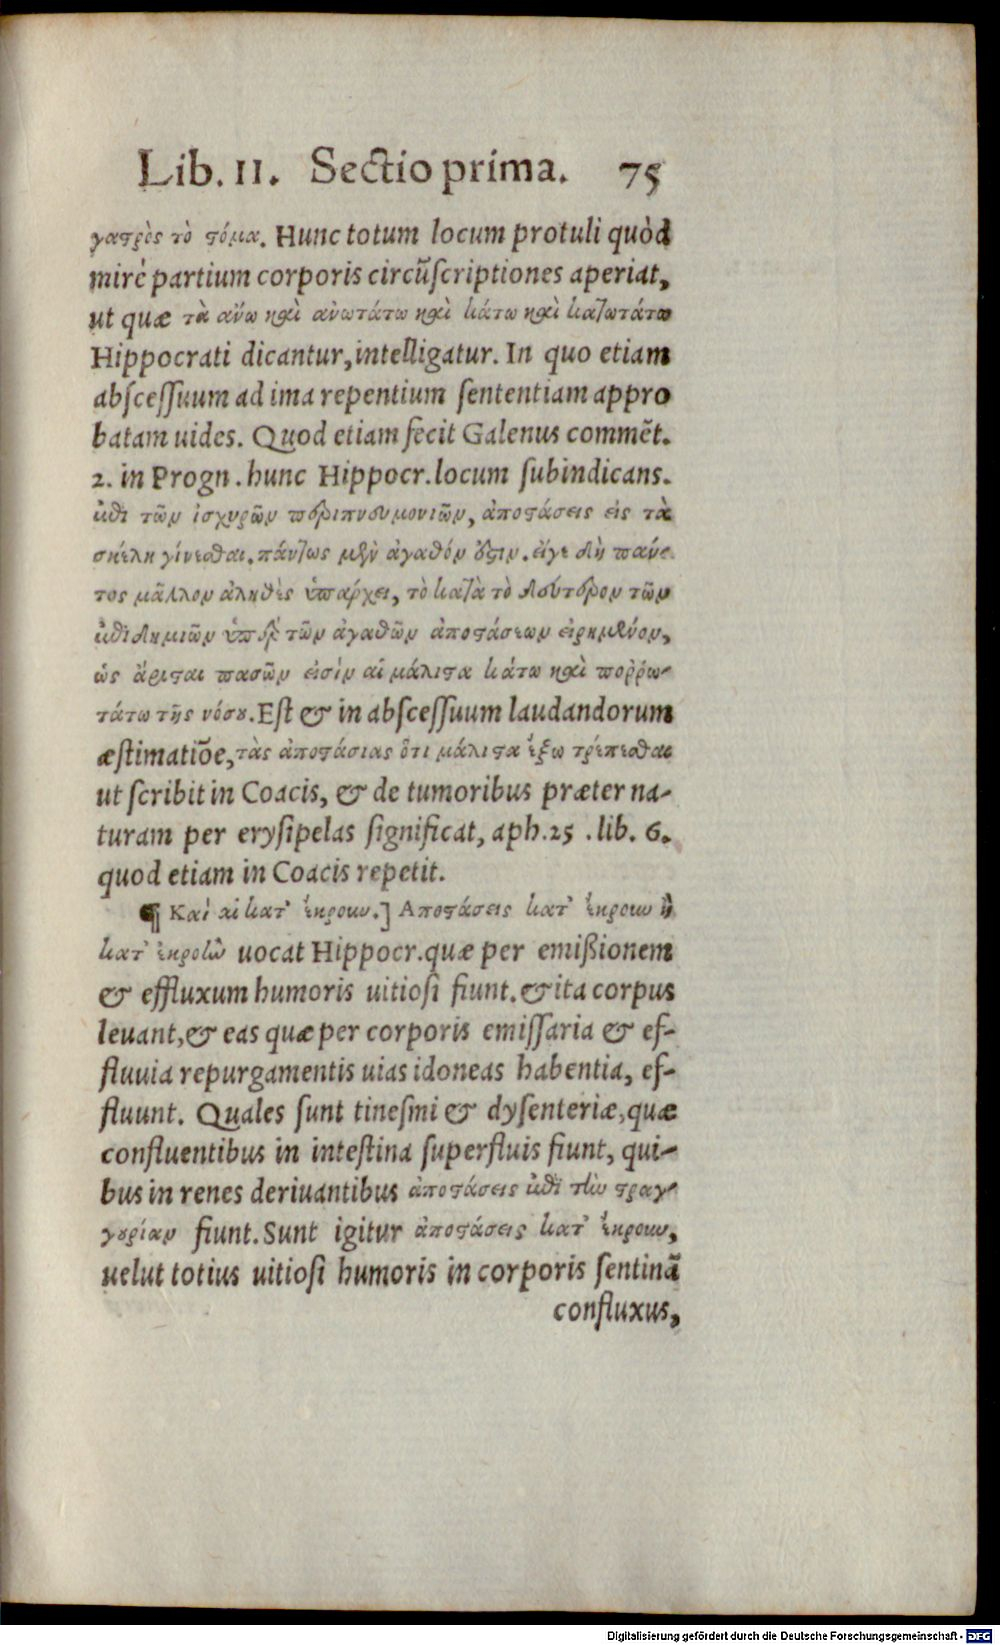 Lib. II. Sectio prima. 75
γαστρὸς τὸ στόμα. Hunc totum locum protuli quòd
mirè partium corporis circũscriptiones aperiat,
ut quæ τὰ ἄνω καὶ ἀνωτάτω καὶ κάτω καὶ κατωτάτω
Hippocrati dicantur, intelligatur. In quo etiam
abscessuum ad ima repentium sententiam appro
batam uides. Quod etiam fecit Galenus commẽt.
2. in Progn. hunc Hippocr. locum subindicans.
ἐπὶ τῶν ἰσχυρῶν περιπνευμονιῶν, ἀποστάσεις εἰς τὰ
σκέλη γίνεσθαι. πάντως μὲν ἀγαθόν ἐστιν. εἴγε δὴ παντ
τος μᾶλλον ἀληθὲς ὑπάρχει, τὸ κατὰ τὸ δεύτερον τῶν
ἐπιδημιῶν ὑπὲρ τῶν ἀγαθῶν ἀποστάσεων εἰρημένον,
ὡς ἄρισται πασῶν εἰσὶν αἱ μάλιστα κάτω καὶ πορρω-
τάτω τῆς νόσου. Est & in abscessuum laudandorum
æstimatiõe, τὰς ἀποστάσιας ὅτι μάλιστα ἔξω τρέπεσθαι
ut scribit in Coacis, & de tumoribus præter na-
turam per erysipelas significat, aph. 25. lib. 6.
quod etiam in Coacis repetit.
¶ Καὶ αἱ κατ' ἔκρουν.] Αποστάσεις κατ' ἔκρουν ἢ
κατ' ἐκροὴν uocat Hippocr. quæ per emißionem
& effluxum humoris uitiosi fiunt. & ita corpus
leuant, & eas quæ per corporis emissaria & ef-
fluuia repurgamentis uias idoneas habentia, ef-
fluunt. Quales sunt tinesmi & dysenteriæ, quæ
confluentibus in intestina superfluis fiunt, qui-
bus in renes deriuantibus ἀποστάσεις ἐπὶ τὴν στραγ-
γουρίαν fiunt. Sunt igitur ἀποστάσεις κατ' ἔκρουν,
uelut totius uitiosi humoris in corporis sentinã
confluxus,
Digitalisierung gefördert durch die Deutsche Forschungsgemeinschaft - DFG